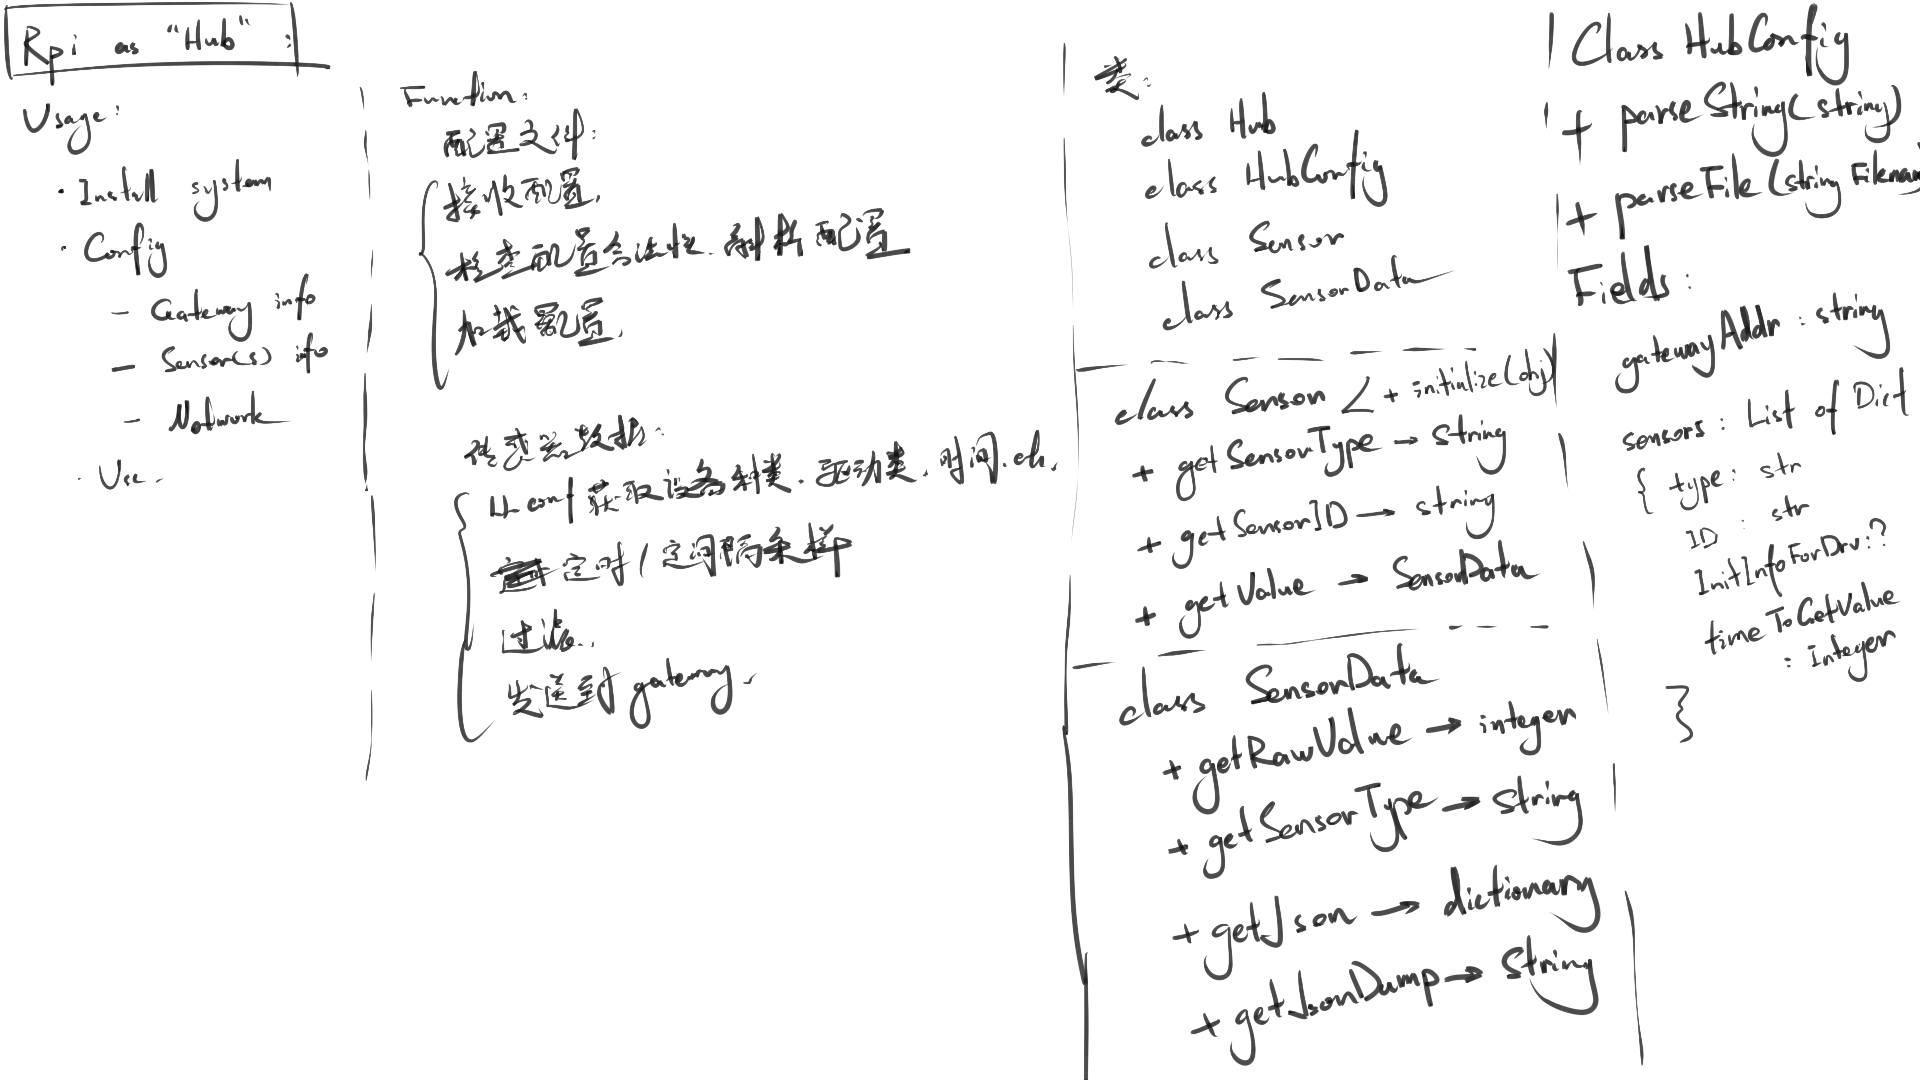 Rpi as "Hub":
Usage:
· Install system
· Config
- Gateway info
- Sensor(s) info
- Network
· Use.
Function:
配置文件:
接收配置,
检查配置合法性. 解析配置
加载配置,
传感器数据:
从conf获取设备种类. 驱动类. 时间.
定时/定间隔采样
过滤.
发送到 gateway.
类:
class Hub
class HubConfig
class Sensor
class SensorData
class Sensor + initialize(obj)
+ getSensorType → string
+ getSensorID → string
+ getValue → SensorData
class SensorData
+ getRawValue → integer
+ getSensorType → string
+ getJson → dictionary
+ getJsonDump → string
Class HubConfig
+ parseString(string)
+ parseFile(string Filenam
Fields:
gatewayAddr: string
sensors: List of Dict
{ type: str
ID: str
InitInfoForDrv:?
timeToGetValue
: Integer
}